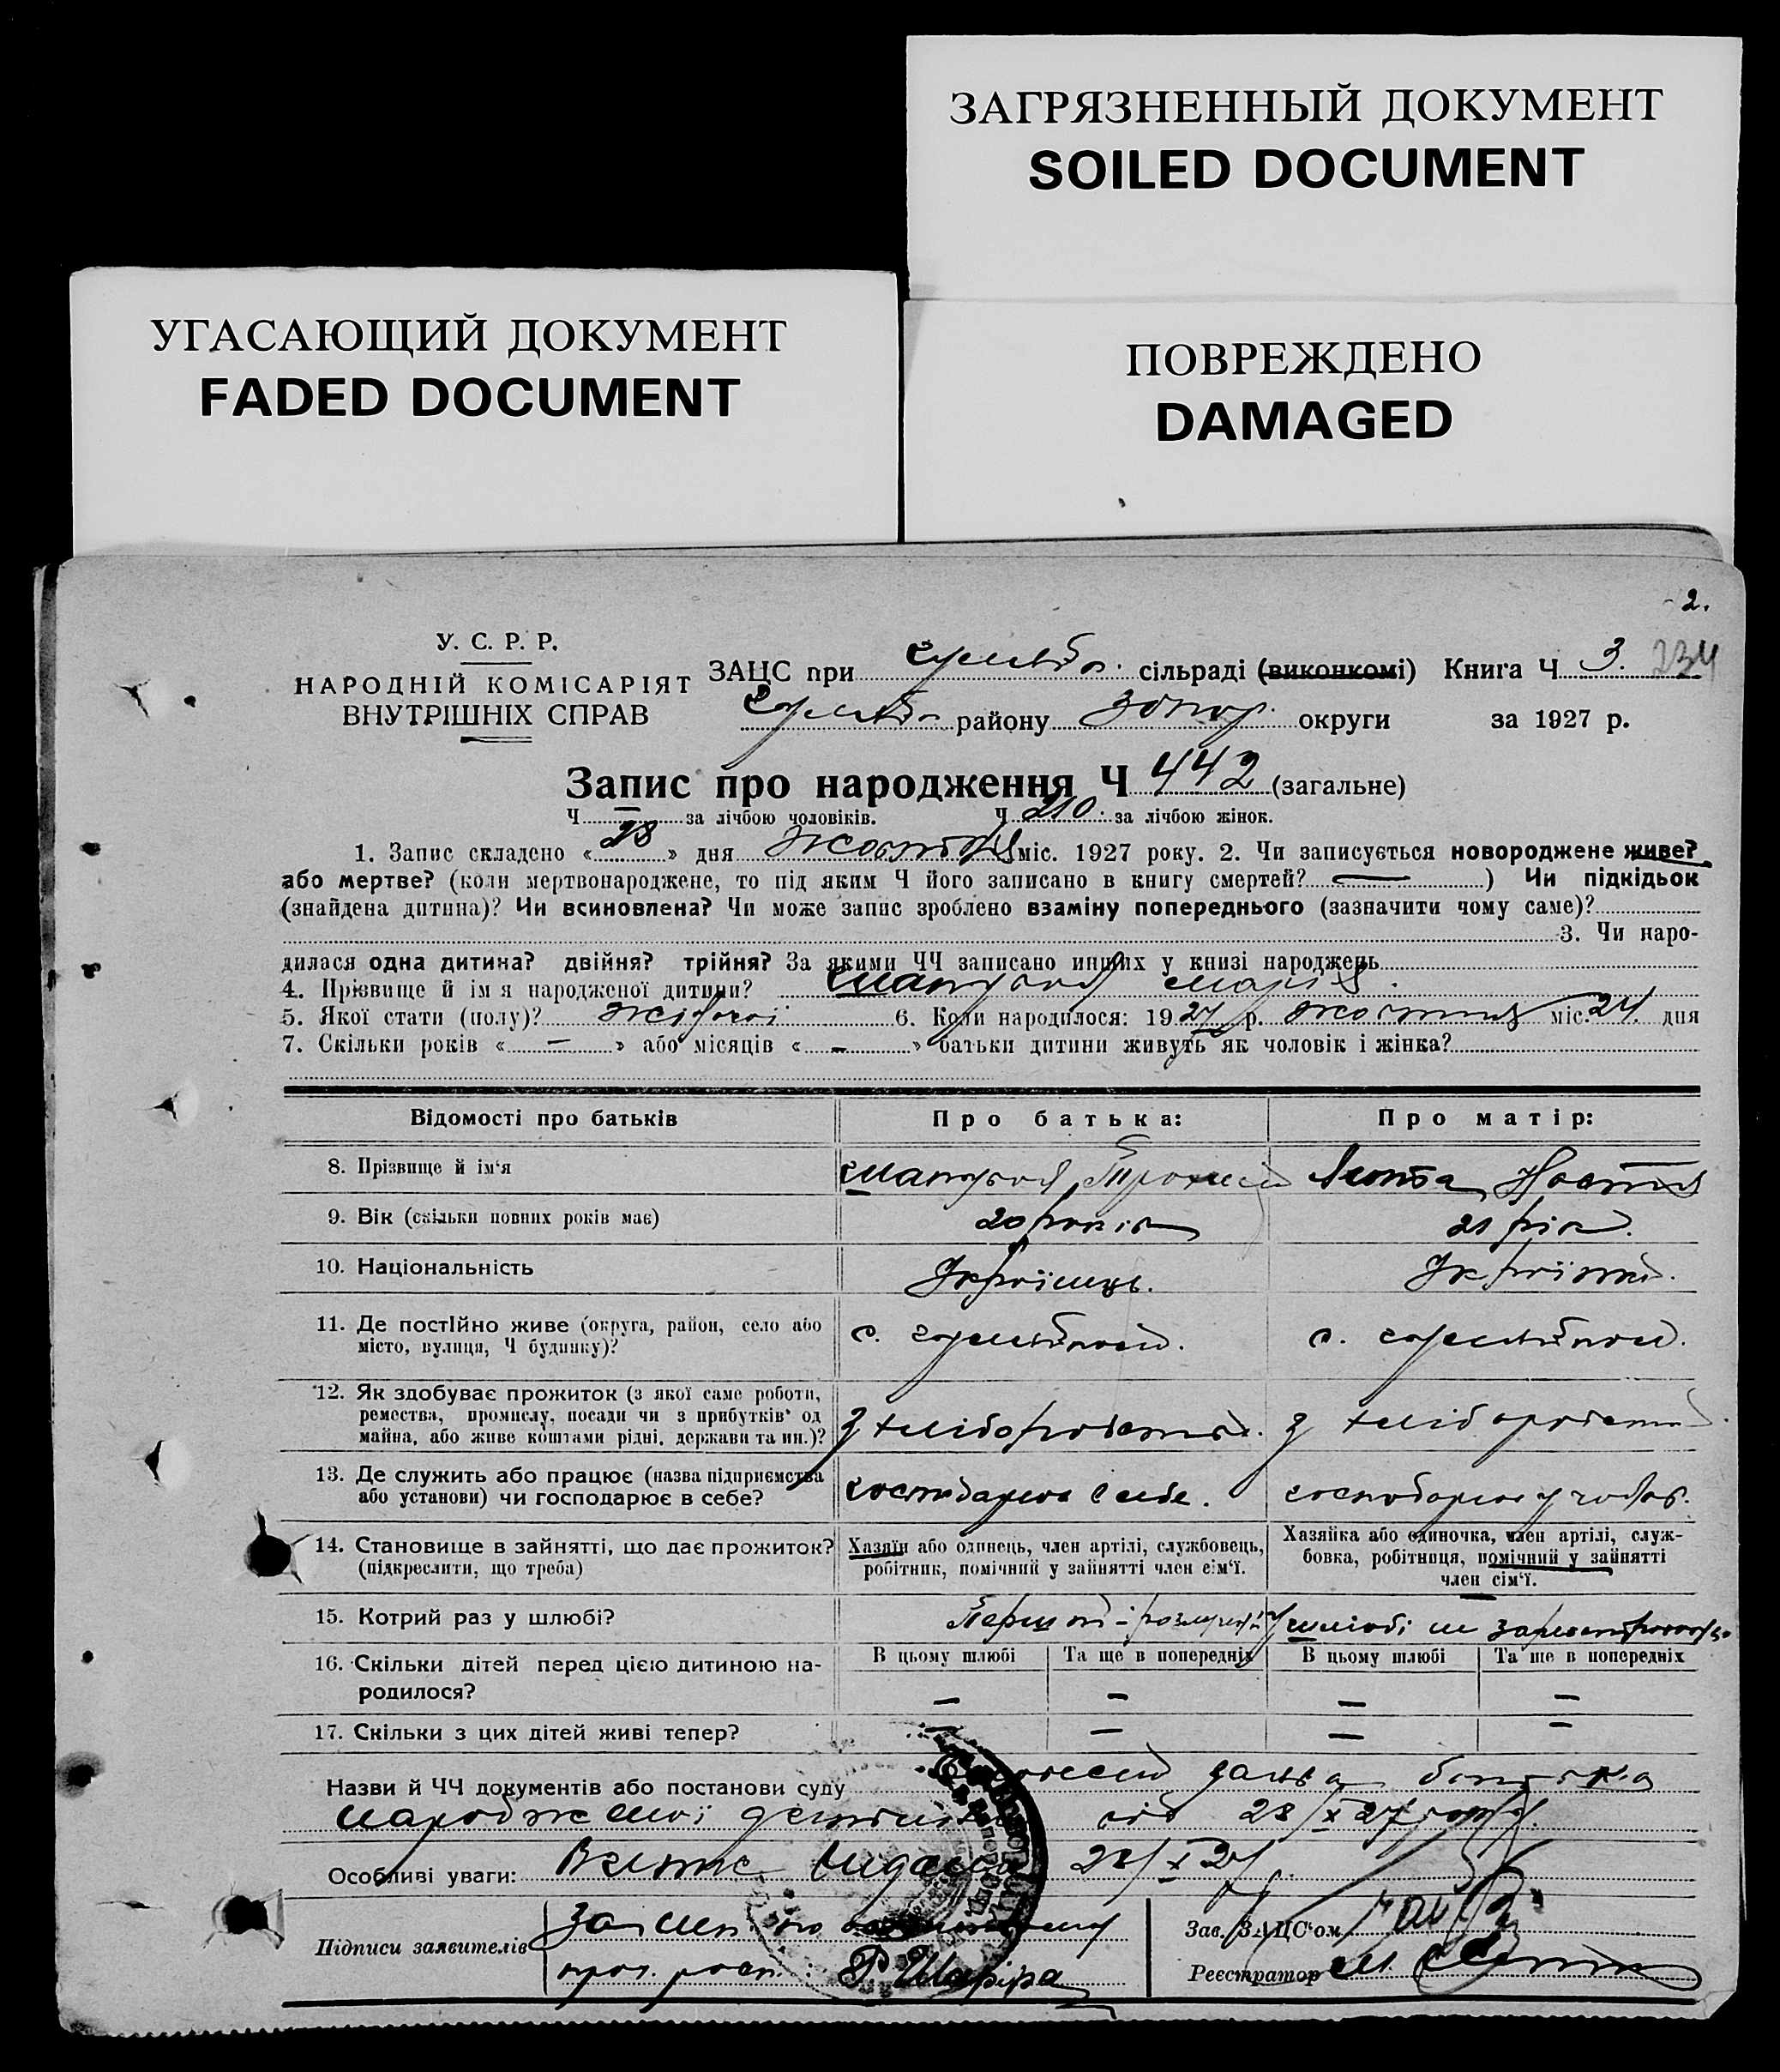 ЗАГРЯЗНЕННЫЙ ДОКУМЕНТ
SOILED DOCUMENT
УГАСАЮЩИЙ ДОКУМЕНТ
FADED DOCUMENT
ПОВРЕЖДЕНО
DAMAGED
2.
У. С. Р. Р.
НАРОДНІЙ КОМІСАРІЯТ
ВНУТРІШНІХ СПРАВ
ЗАЦС при сільраді (виконкомі) Книга Ч 3. 234
району Запор. округи за 1927 р.
Запис про народження Ч 442 (загальне)
Ч — за лічбою чоловіків. Ч 210. за лічбою жінок.
1. Запис складено « 28 » дня жовтня міс. 1927 року. 2. Чи записується новороджене живе?
або мертве? (коли мертвонароджене, то під яким Ч його записано в книгу смертей? — ) Чи підкідьок
(знайдена дитина)? Чи всиновлена? Чи може запис зроблено взаміну попереднього (зазначити чому саме)?
3. Чи наро-
дилася одна дитина? двійня? трійня? За якими ЧЧ записано инших у книзі народжень
4. Прізвище й ім я народженої дитини? Марія.
5. Якої стати (полу)? жіночої 6. Коли народилося: 1927 р. жовтня міс. 24. дня
7. Скільки років « — » або місяців « — » батьки дитини живуть як чоловік і жінка?
Відомості про батьків Про батька: Про матір:
8. Прізвище й ім‘я
9. Вік (скільки повних років має) 20 років 21 рік.
10. Національність Українець. Українка.
11. Де постійно живе (округа, район, село або
місто, вулиця, Ч будинку)? с. с.
12. Як здобуває прожиток (з якої саме роботи,
ремества, промислу, посади чи з прибутків од
майна, або живе коштами рідні, держави та ин.)? З хліборобства. З хліборобства.
13. Де служить або працює (назва підприємства
або установи) чи господарює в себе? господарює в себе. господарює у чолов.
14. Становище в зайнятті, що дає прожиток?
(підкреслити, що треба)
Хазяїн або одинець, член артілі, службовець,
робітник, помічний у зайнятті член сім‘ї.
Хазяйка або одиночка, член артілі, служ-
бовка, робітниця, помічний у зайнятті
член сім‘ї.
15. Котрий раз у шлюбі? Перший шлюбі не
16. Скільки дітей перед цією дитиною на-
родилося?
В цьому шлюбі Та ще в попередніх В цьому шлюбі Та ще в попередніх
— — — —
17. Скільки з цих дітей живі тепер? — — — —
Назви й ЧЧ документів або постанови суду заява батька
народженої дитини від 28/X 27 року.
Особливі уваги: Витяг видано 28/X 27
Підписи заявителів За
Зав. ЗАЦС‘ом
Реєстратор